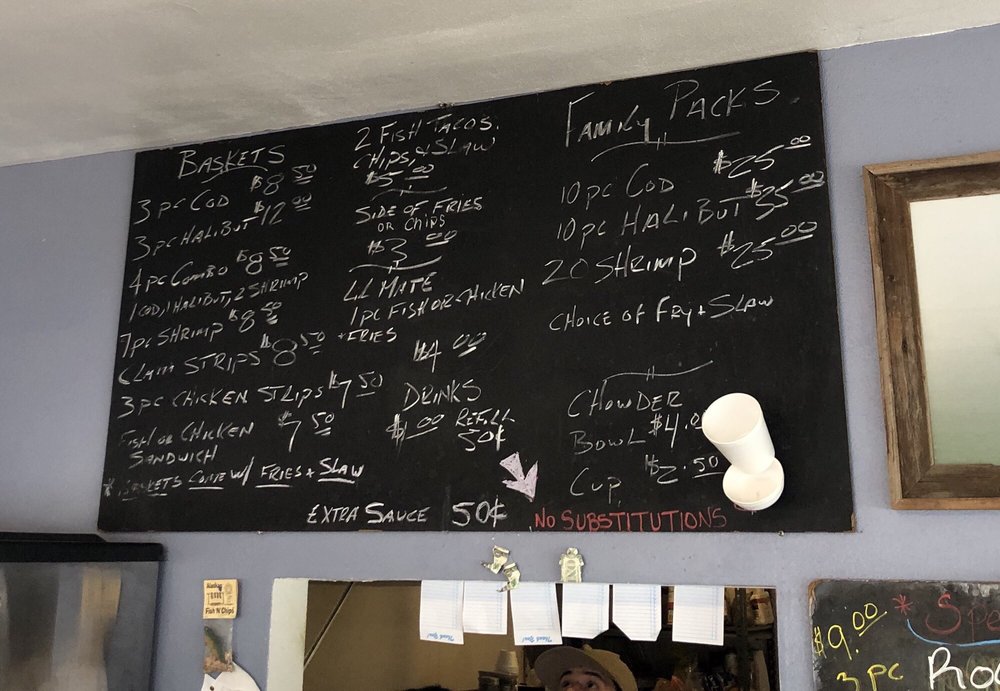 BASKETS
3 PC COD $8 50
3 PC HALIBUT $12 00
4 PC COMBO $8 50
1 COD, 1 HALIBUT, 2 SHRIMP
7 PC SHRIMP $8 50
CLAM STRIPS $8 50
3 PC CHICKEN STRIPS $7 50
FISH OR CHICKEN $7 50
SANDWICH
* BASKETS COME W/ FRIES + SLAW
2 FISH TACOS,
CHIPS, & SLAW
$5 00
SIDE OF FRIES
OR CHIPS
$3 00
LL MATE
1 PC FISH OR CHICKEN
+ FRIES
$4 00
DRINKS
$1 00 REFILL
50¢
EXTRA SAUCE 50¢
Family PACKS
10 PC COD $25 00
10 PC HALIBUT $35 00
20 SHRIMP $25 00
CHOICE OF FRY + SLAW
CHOWDER
BOWL $4.0
CUP $2.50
NO SUBSTITUTIONS
Fish N' Chips
Thank You!
Thank You!
$9.00 * Spe
3 PC Ro